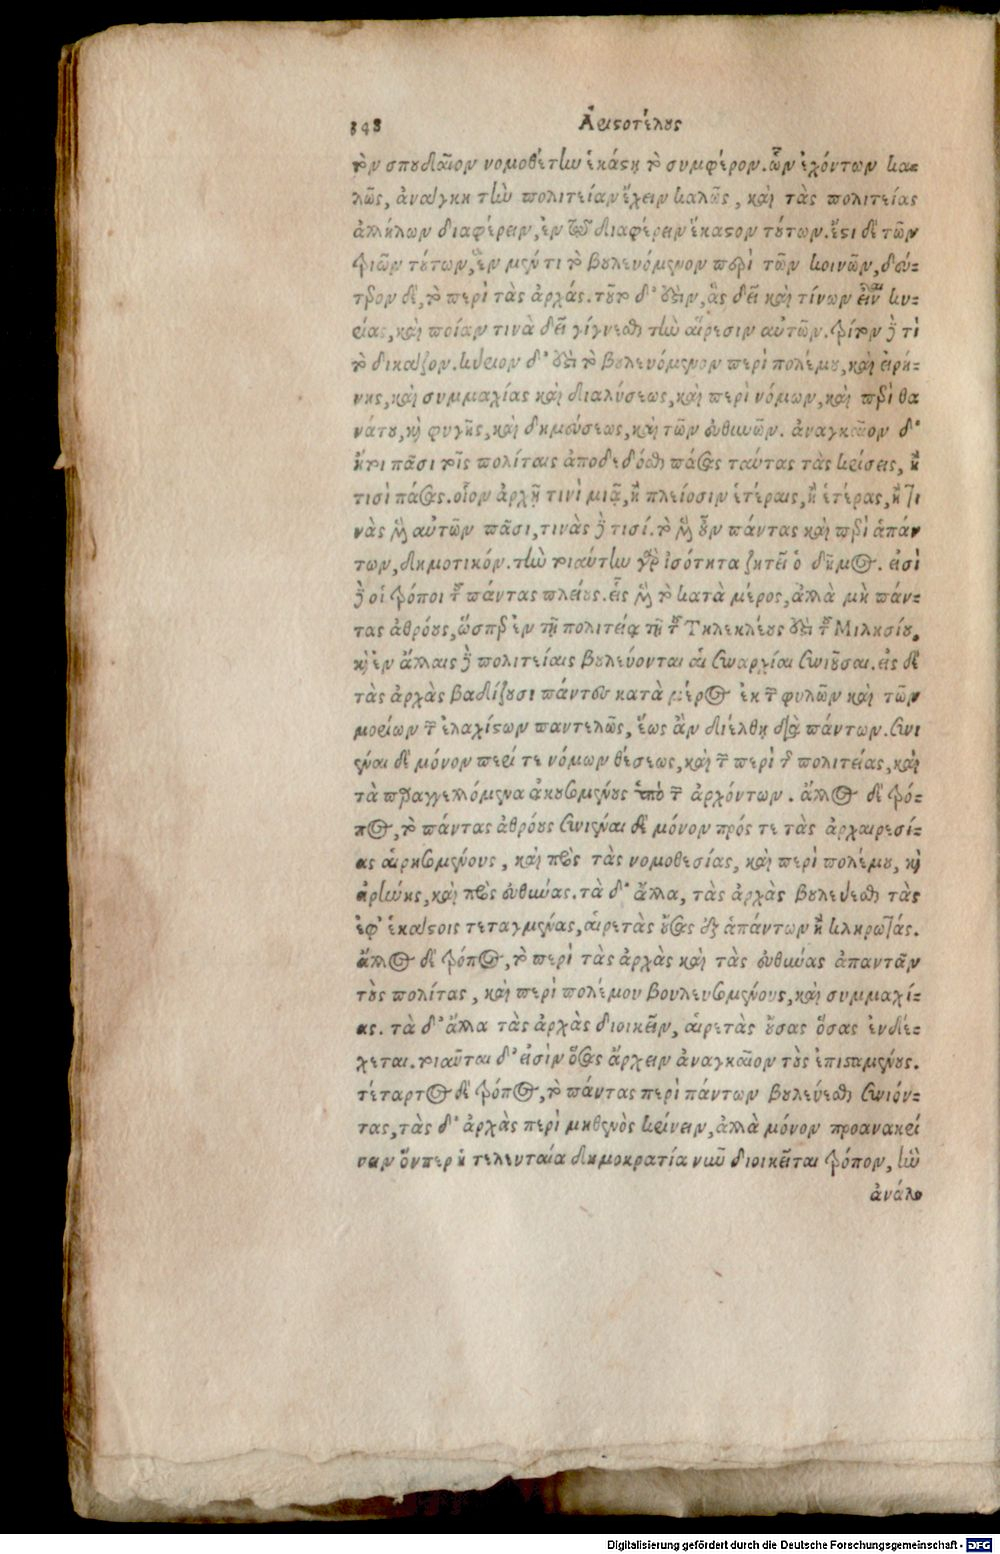 348 Ἀριστοτέλους
τὸν σπουδαῖον νομοθέτην ἑκάστῃ τὸ συμφέρον. ὧν ἐχόντων κα-
λῶς, ἀνάγκη τὴν πολιτείαν ἔχειν καλῶς, καὶ τὰς πολιτείας
ἀλλήλων διαφέρειν, ἐν τῷ διαφέρειν ἕκαστον τούτων. ἔστι δὲ τῶν
τριῶν τούτων, ἓν μέν τι τὸ βουλευόμενον περὶ τῶν κοινῶν, δεύ-
τερον δὲ, τὸ περὶ τὰς ἀρχάς. τοῦτο δ' ἐστὶν, ἃς δεῖ καὶ τίνων εἶναι κυ-
ρίας, καὶ ποίαν τινὰ δεῖ γίγνεσθαι τὴν αἵρεσιν αὐτῶν. τρίτον δέ τι
τὸ δικάζον. κύριον δ' ἐστὶ τὸ βουλευόμενον περὶ πολέμου, καὶ εἰρή-
νης, καὶ συμμαχίας καὶ διαλύσεως, καὶ περὶ νόμων, καὶ περὶ θα
νάτου, καὶ φυγῆς, καὶ δημεύσεως, καὶ τῶν εὐθυνῶν. ἀναγκαῖον δ'
ἤτοι πᾶσι τοῖς πολίταις ἀποδεδόσθαι πάσας ταύτας τὰς κρίσεις, ἢ
τισὶ πάσας. οἷον ἀρχῇ τινὶ μιᾷ, ἢ πλείοσιν ἑτέραις, ἢ ἑτέρας, ἢ τι
νὰς μὲν αὐτῶν πᾶσι, τινὰς δὲ τισί. τὸ μὲν οὖν πάντας καὶ περὶ ἁπάν
των, δημοτικόν. τὴν τοιαύτην γὰρ ἰσότητα ζητεῖ ὁ δῆμος. εἰσὶ
δὲ οἱ τρόποι τοῦ πάντας πλείους. εἷς μὲν τὸ κατὰ μέρος, ἀλλὰ μὴ πάν-
τας ἀθρόους, ὥσπερ ἐν τῇ πολιτείᾳ τῇ τοῦ Τηλεκλέους ἐστὶ τοῦ Μιλησίου.
καὶ ἐν ἄλλαις δὲ πολιτείαις βουλεύονται αἱ συναρχίαι συνιοῦσαι. εἰς δὲ
τὰς ἀρχὰς βαδίζουσι πάντες κατὰ μέρος ἐκ τῶν φυλῶν καὶ τῶν
μορίων τῶν ἐλαχίστων παντελῶς, ἕως ἂν διέλθῃ διὰ πάντων. συνι
έναι δὲ μόνον περί τε νόμων θέσεως, καὶ τῶν περὶ τῆς πολιτείας, καὶ
τὰ παραγγελλόμενα ἀκουσομένους ὑπὸ τῶν ἀρχόντων. ἄλλος δὲ τρό-
πος, τὸ πάντας ἀθρόους συνιέναι δὲ μόνον πρός τε τὰς ἀρχαιρεσί-
ας αἱρησομένους, καὶ πρὸς τὰς νομοθεσίας, καὶ περὶ πολέμου, καὶ
εἰρήνης, καὶ πρὸς εὐθύνας. τὰ δ' ἄλλα, τὰς ἀρχὰς βουλεύεσθαι τὰς
ἐφ' ἑκάστοις τεταγμένας, αἱρετὰς οὔσας ἐξ ἁπάντων ἢ κληρωτάς.
ἄλλος δὲ τρόπος, τὸ περὶ τὰς ἀρχὰς καὶ τὰς εὐθύνας ἀπαντᾶν
τοὺς πολίτας, καὶ περὶ πολέμου βουλευσομένους, καὶ συμμαχί-
ας. τὰ δ' ἄλλα τὰς ἀρχὰς διοικεῖν, αἱρετὰς οὔσας ὅσας ἐνδέ-
χεται. τοιαῦται δ' εἰσὶν ὅσας ἄρχειν ἀναγκαῖον τοὺς ἐπισταμένους.
τέταρτος δὲ τρόπος, τὸ πάντας περὶ πάντων βουλεύεσθαι συνιόν-
τας, τὰς δ' ἀρχὰς περὶ μηθενὸς κρίνειν, ἀλλὰ μόνον προανακρί
νειν ὅνπερ ἡ τελευταία δημοκρατία νῦν διοικεῖται τρόπον, ἣν
ἀνάλο
Digitalisierung gefördert durch die Deutsche Forschungsgemeinschaft - DFG